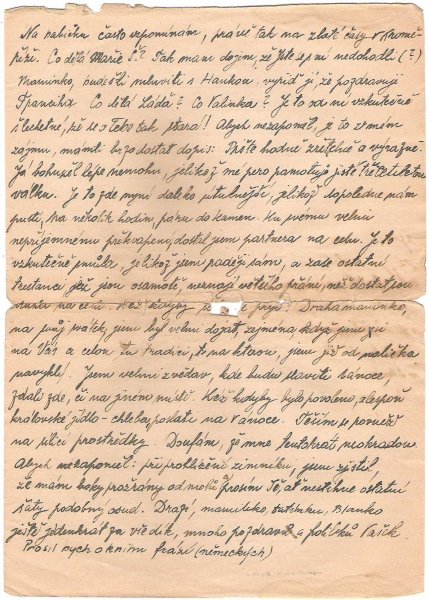 Na babičku často vzpomínám, právě tak na zlaté časy v Kromě-
říži. Co dělá Marie Š.? Tak mám dojem, že jste se s ní nedohodli (?)
Maminko, budeš-li mluviti s Hankou, vyřiď jí, že pozdravuji
Frantíka. Co dělá Láďa? Co Talinka? Je to od ní vskutečně
šlechetné, že se o Tebe tak stará! Abych nezapoměl, je to ve mém
zájmu, mám-li brzo dostat dopis: Pište hodně zřetelně a výrazně.
Já bohužel lépe nemohu, jelikož mé pero pamatuje jistě třicetiletou
válku. Je to zde nyní daleko útulnější, jelikož dopoledne nám
pustí, na několik hodin, páru do kamen. Ku svému velmi
nepříjemnému překvapení, dostal jsem partnera na celu. Je to
vskutečně smůla, jelikož jsem raději sám, a zase ostatní
trestanci, jež jsou osamotě, neznají většího přání, než dostat jsou
druha na celu. Než kdyby Drahá maminko,
na svůj svátek, jsem byl velmi dojat, zejména když jsem
na Vás a celou tu tradici, to na kterou, jsem již od malička
navyklý. Jsem velmi zvědav, kde budu slaviti vánoce,
zdali zde, či na jiném místě. Kéž kdyby bylo povoleno, alespoň
královské jídlo - chleba, poslati na Vánoce. Těším se poněvěž
na silící prostředky. Doufám, že mne tentokrát neohradou.
Abych nezapoměl: při prohlížení zimníku, jsem zjistil,
že mám boky prožrány od molů. Prosím Tě, ať nestihne ostatní
šaty podobný osud. Drazí, maminko, tatínku, Blanko
ještě jedenkrát za vše dík, mnoho pozdravů a polibků Vašík.
Prosil bych o knihu frází (německých)